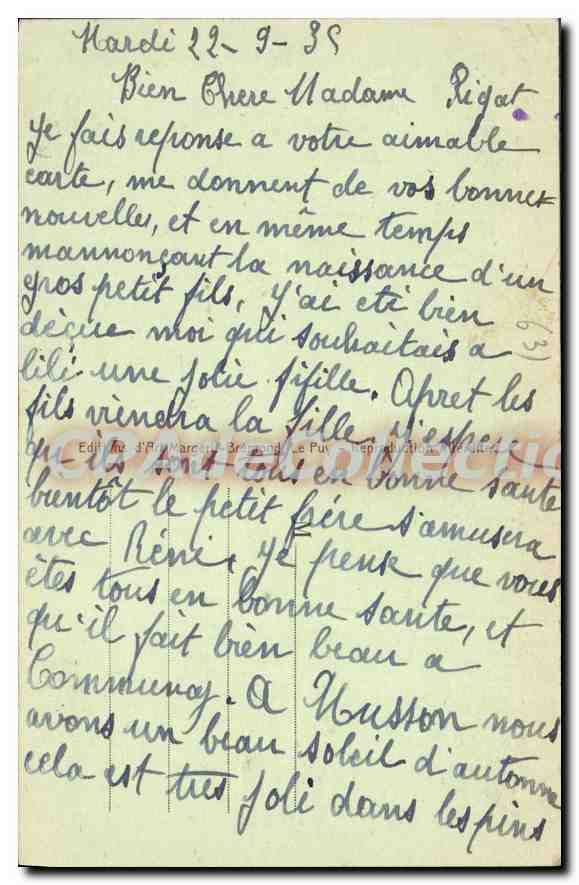 Mardi 22-9-35
Bien Chere Madame Rigat
Je fais reponse a votre aimable
carte, me donnent de vos bonnes
nouvelles, et en même temps
mannonçant la naissance d'un
gros petit fils, j'ai eté bien
déçue moi qui souhaitais a
lili une jolie fifille. Apret les
fils viendra la fille, j'espere
Editions d'Art Margerit-Brémond, Le Puy Reproduction
qu'ils sont tous en bonne sante
bientôt le petit frére s'amusera
avec Réné. Je pense que vous
êtes tous en bonne sante, et
qu'il fait bien beau a
Communay. A Husson nous
avons un beau soleil d'automne
cela est tres joli dans les pins
63)